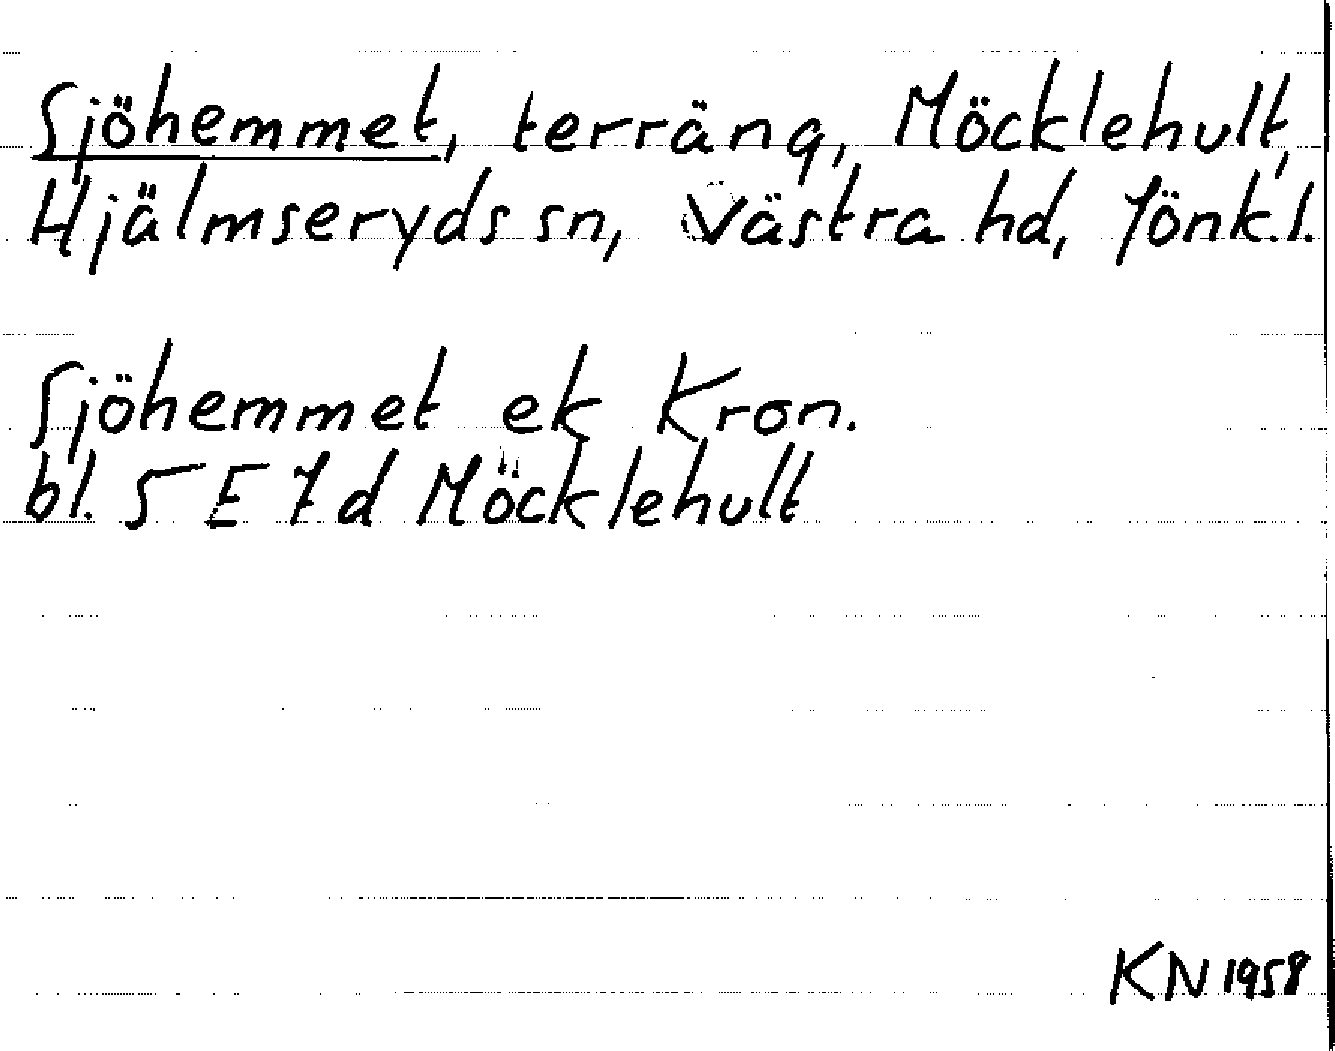 Sjöhemmet, terräng, Möcklehult,
Hjälmseryds sn, Västra hd, Jönk.l.
Sjöhemmet ek Kron.
bl. 5 E 7 d Möcklehult
KN 1958